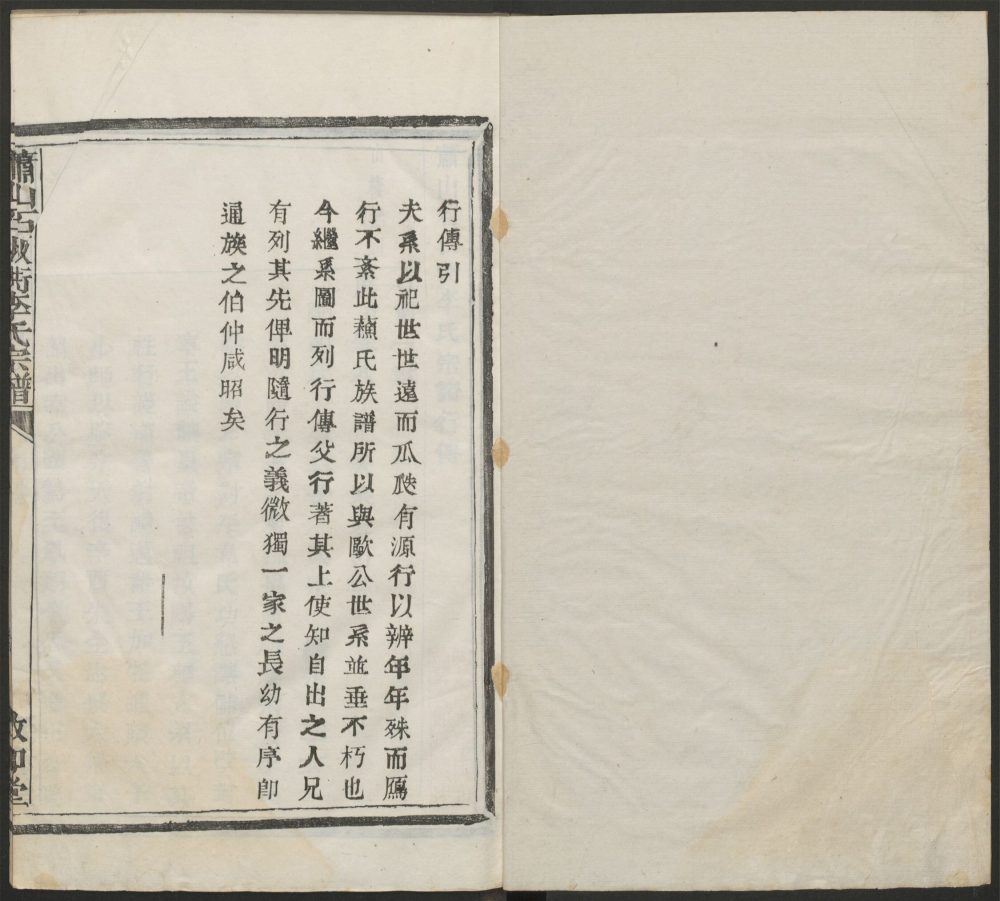 行傳引
夫系以祀世世遠而瓜瓞有源行以辨年年殊而鴈
行不紊此蘓氏族譜所以與歐公世系並垂不朽也
今繼系圖而列行傳父行著其上使知自出之人兄
有列其先俾明隨行之義微獨一家之長幼有序卽
通族之伯仲咸昭矣
蕭山 李氏宗譜
堂